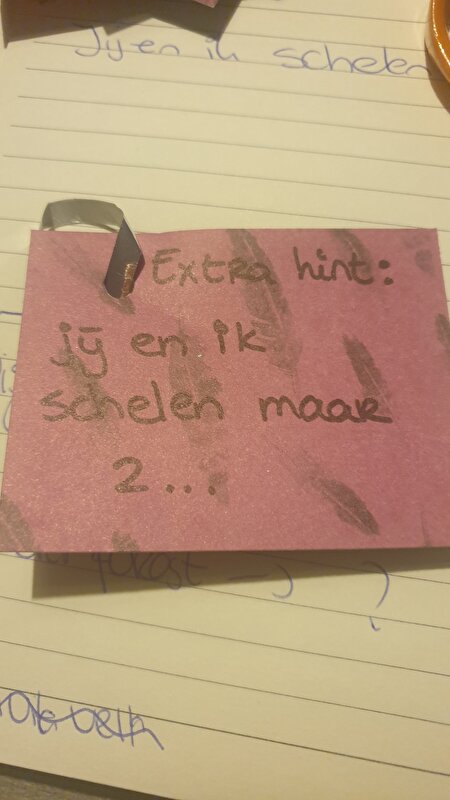 Jij en ik schelen
Extra hint:
jij en ik
schelen maar
2...
?